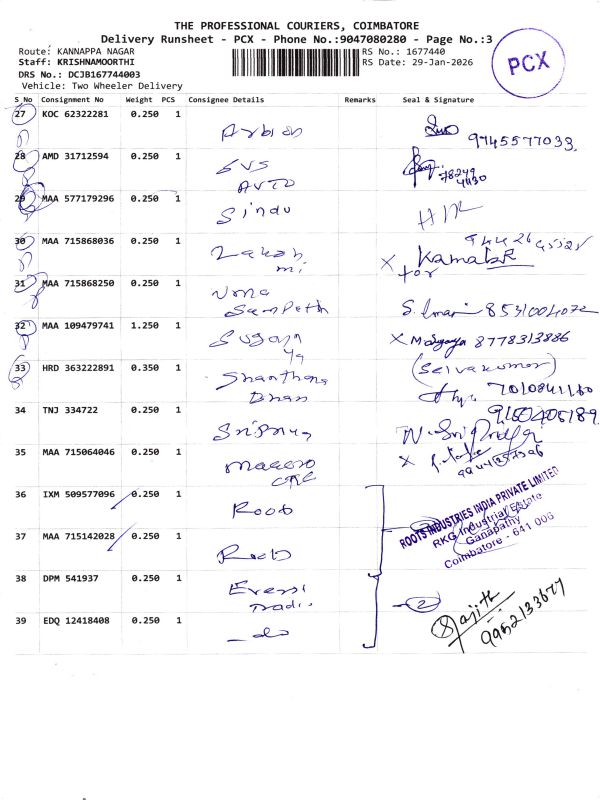 THE PROFESSIONAL COURIERS, COIMBATORE
Delivery Runsheet - PCX - Phone No.:9047080280 - Page No.:3
Route: KANNAPPA NAGAR
Staff: KRISHNAMOORTHI
DRS No.: DCJB167744003
Vehicle: Two Wheeler Delivery
RS No.: 1677440
RS Date: 29-Jan-2026
PCX
S No Consignment No Weight PCS Consignee Details Remarks Seal & Signature
27 KOC 62322281 0.250 1
9745577033
28 AMD 31712594 0.250 1 SVS AUTO
29 MAA 577179296 0.250 1 Sindu
30 MAA 715868036 0.250 1 Lakshmi
for Kamala
31 MAA 715868250 0.250 1 Uma Sampath
8531004072
32 MAA 109479741 1.250 1 Suganya
8778313886
33 HRD 363222891 0.350 1 Shanthana
(Selvakumar)
7010841160
34 TNJ 334722 0.250 1 Sripriya
9150405189
35 MAA 715064046 0.250 1
36 IXM 509577096 0.250 1 Roots
37 MAA 715142028 0.250 1 Roots
ROOTS INDUSTRIES INDIA PRIVATE LIMITED
RKG Industrial Estate
Ganapathy
Coimbatore - 641 006
38 DPM 541937 0.250 1
2
39 EDQ 12418408 0.250 1 do
Sajith
9952133677